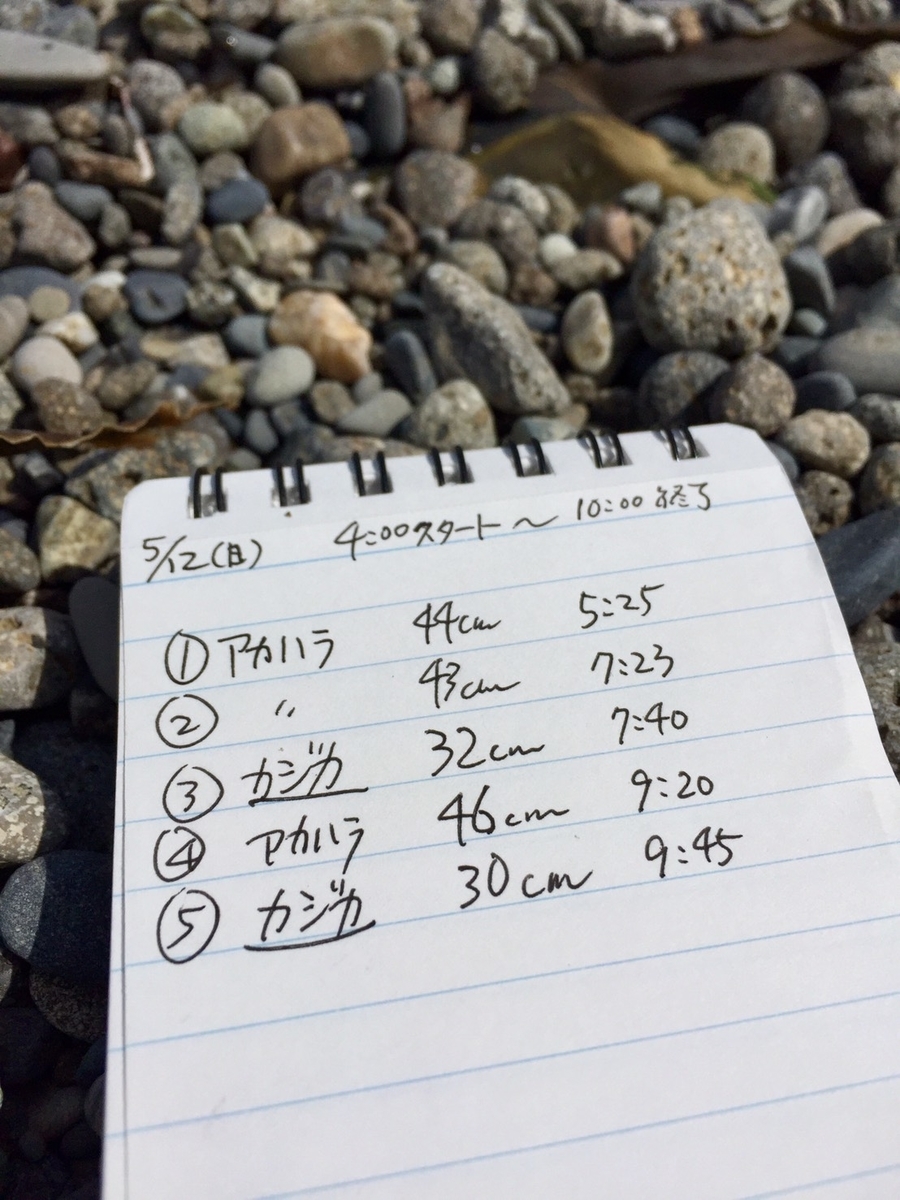 5/12(日) 4:00スタート〜10:00終了
① アカハラ 44cm 5:25
② 〃 43cm 7:23
③ カジカ 32cm 7:40
④ アカハラ 46cm 9:20
⑤ カジカ 30cm 9:45